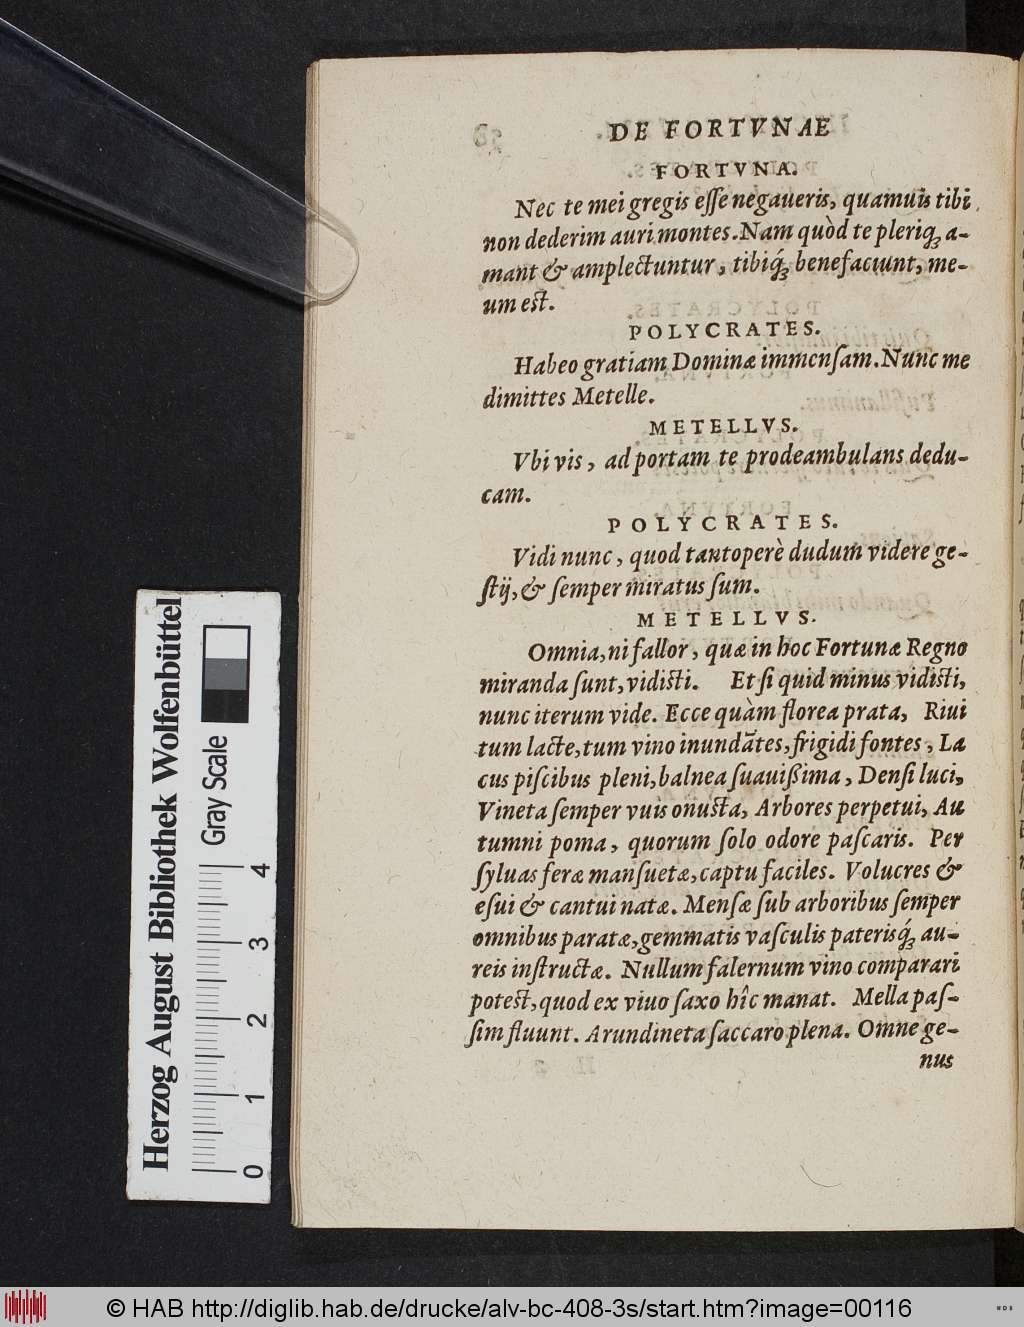 DE FORTVNAE
FORTVNA.
Nec te mei gregis eſſe negaueris, quamuis tibi
non dederim auri montes. Nam quòd te pleriqꝫ a-
mant & amplectuntur, tibiqꝫ́ benefaciunt, me-
um est.
POLYCRATES.
Habeo gratiam Dominæ immenſam. Nunc me
dimittes Metelle.
METELLVS.
Vbi vis, ad portam te prodeambulans dedu-
cam.
POLYCRATES.
Vidi nunc, quod tantoperè dudum videre ge-
ſtij, & ſemper miratus ſum.
METELLVS.
Omnia, ni fallor, quæ in hoc Fortunæ Regno
miranda ſunt, vidisti. Et ſi quid minus vidisti,
nunc iterum vide. Ecce quàm florea prata, Riui
tum lacte, tum vino inundãtes, frigidi fontes, La
cus piſcibus pleni, balnea ſuauißima, Denſi luci,
Vineta ſemper vuis onusta, Arbores perpetui, Au
tumni poma, quorum ſolo odore paſcaris. Per
ſyluas feræ manſuetæ, captu faciles. Volucres &
eſui & cantui natæ. Menſæ ſub arboribus ſemper
omnibus paratæ, gemmatis vaſculis paterisqꝫ́ au-
reis inſtructæ. Nullum falernum vino comparari
potest, quod ex viuo ſaxo hîc manat. Mella paſ-
ſim fluunt. Arundineta ſaccaro plena. Omne ge-
nus
Herzog August Bibliothek Wolfenbüttel
Gray Scale
0 1 2 3 4
© HAB http://diglib.hab.de/drucke/alv-bc-408-3s/start.htm?image=00116